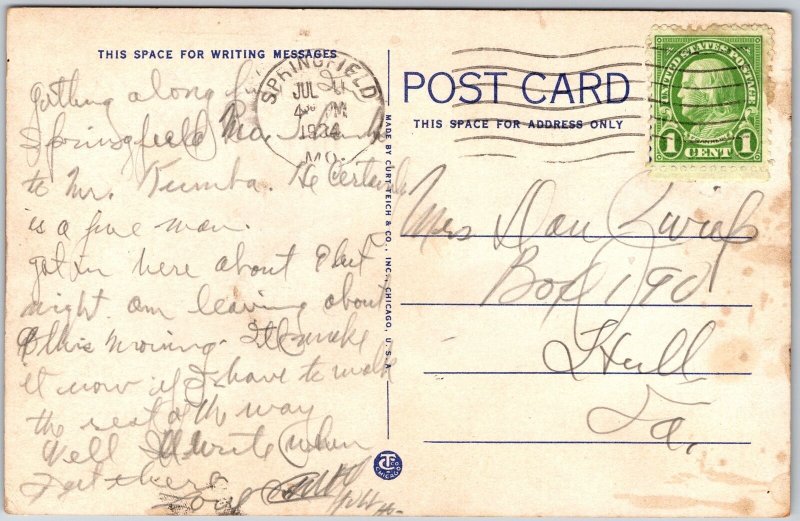 THIS SPACE FOR WRITING MESSAGES
getting along fine
Springfield Mo.
to Mr. He Certainly
is a fine man.
got in here about 9 last
night. am leaving about
8 this morning. Ill make
it now if I have to walk
the rest of the way
Well Ill write when
I get there
Love
SPRINGFIELD
JUL
4 30 PM
1934
MO.
MADE BY CURT TEICH & CO., INC., CHICAGO, U.S.A.
POST CARD
THIS SPACE FOR ADDRESS ONLY
UNITED STATES POSTAGE
1 CENT 1
Mrs Dan
Box 190
Hull
Ia.
CHICAGO